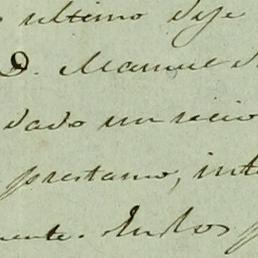 ultimo dije
D. Manuel d
dado un recio
prestamo, int
mente. Indos